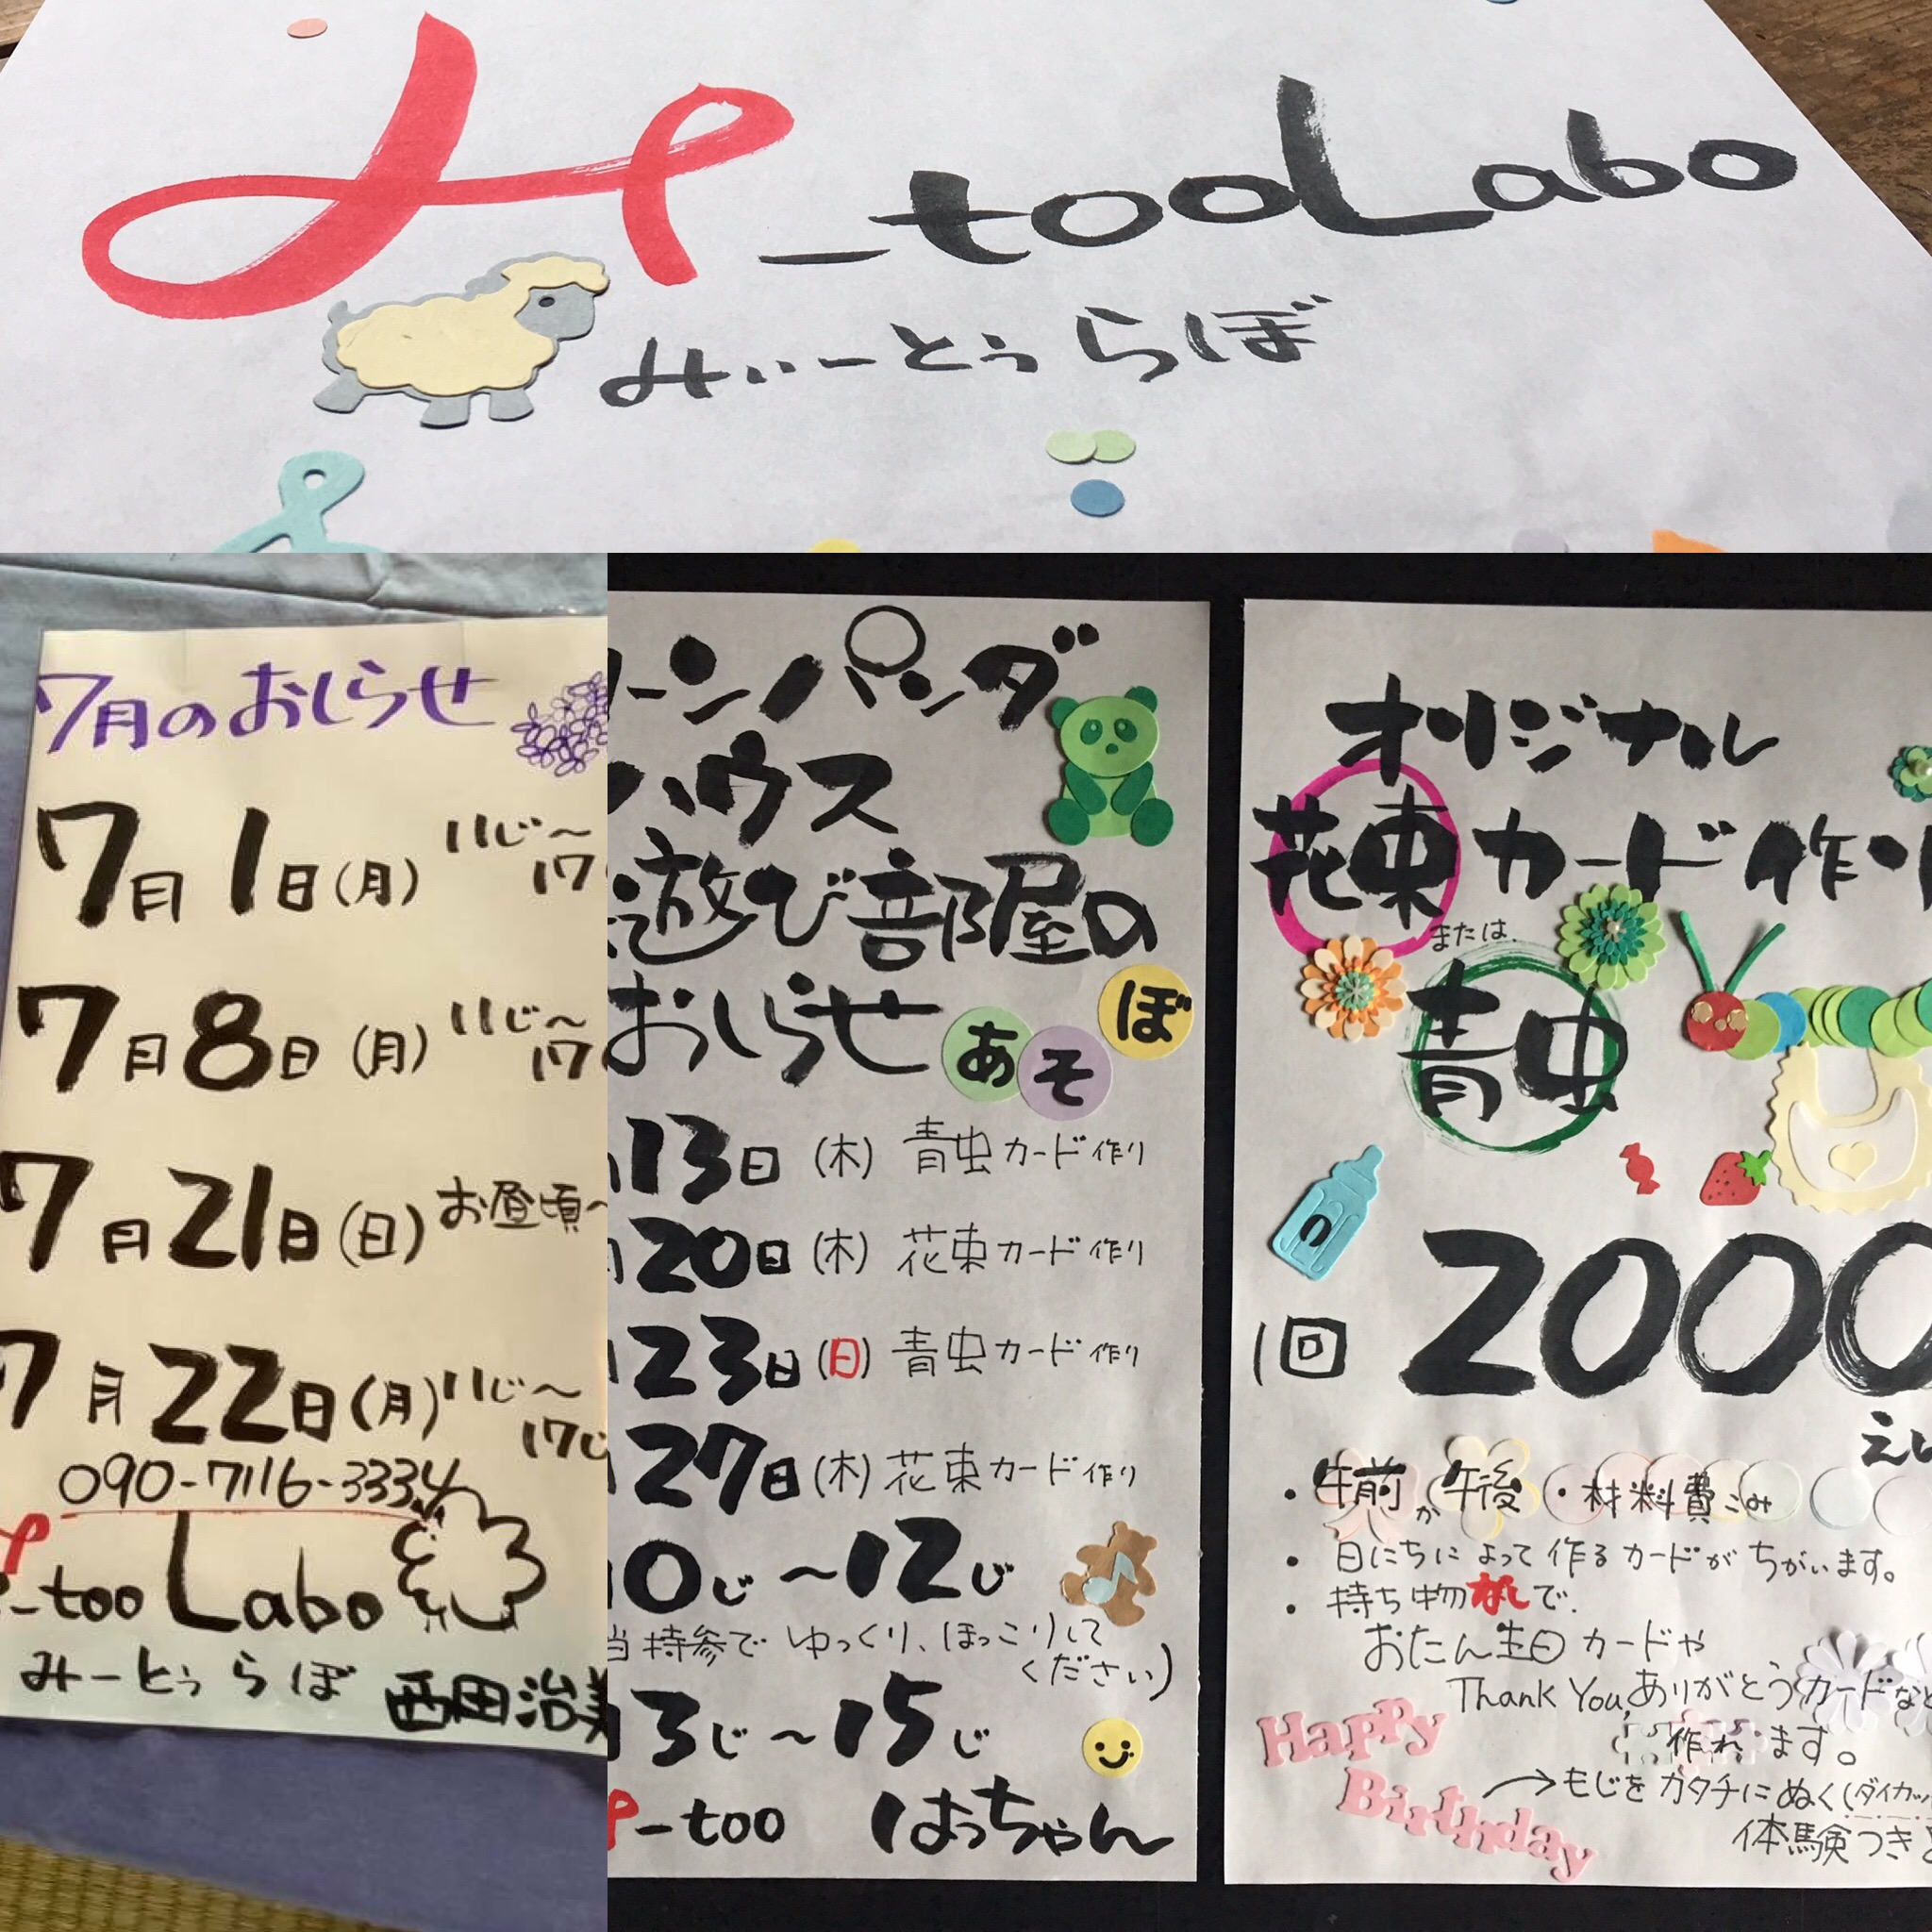 み_too Labo
みぃーとぅらぼ
7月のおしらせ
7月1日(月) 11じ〜
17
7月8日(月) 11じ〜
17
7月21日(日) お昼頃〜
7月22日(月) 11じ〜
17じ
090-7116-3334
-too Labo
みーとぅらぼ 西田治美
ーンパンダ
ハウス
遊び部屋の
おしらせ あそぼ
13日(木) 青虫カード作り
20日(木) 花束カード作り
23日(日) 青虫カード作り
27日(木) 花束カード作り
0じ〜12じ
当持参でゆっくり、ほっこりして
ください)
3じ〜15じ
-too はっちゃん
オリジナル
花束カード作り
または
青虫
の
1回 2000
えん
・午前か午後・材料費こみ
・日にちによって作るカードがちがいます。
・持ち物なしで、
おたん生日カードや
Thank You,ありがとうカードなど
作れます。
Happy
Birthday
→もじをカタチにぬく(ダイカッ
体験つき